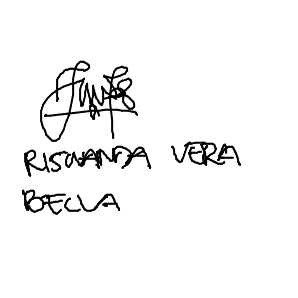 RISWANDA VERA
BELLA